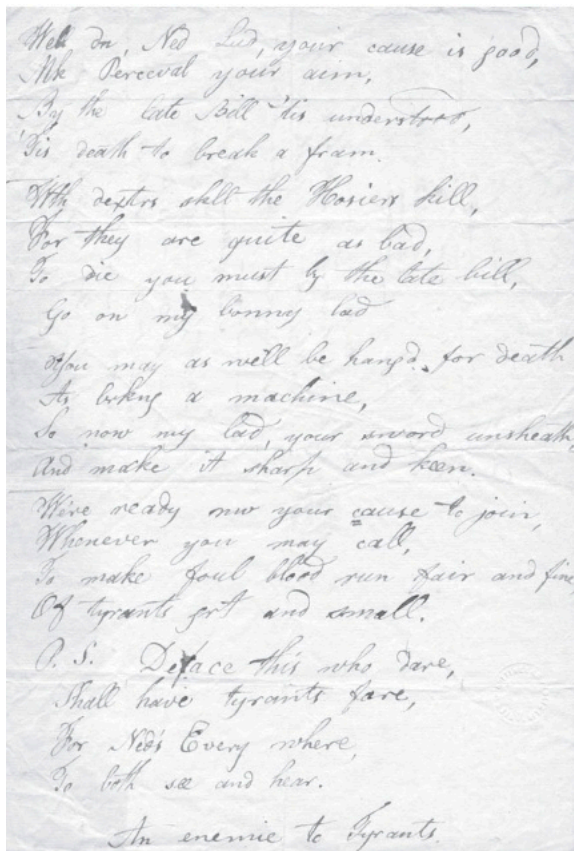 Well dn, Ned Lud, your cause is good,
Mk Perceval your aim,
By the late Bill 'tis understood,
'Tis death to break a fram.
With dextrs skll the Hosiers kill,
For they are quite as bad,
To die you must by the late bill,
Go on my bonny lad
You may as well be hangd for death
As brkng a machine,
So now my lad, your sword unsheath,
And make it sharp and keen.
We're ready nw your cause to join,
Whenever you may call,
To make foul blood run fair and fine,
Of tyrants grt and small.
P. S. Deface this who dare,
Shall have tyrants fare,
For Ned's Every where,
To both see and hear.
An enemie to Tyrants.